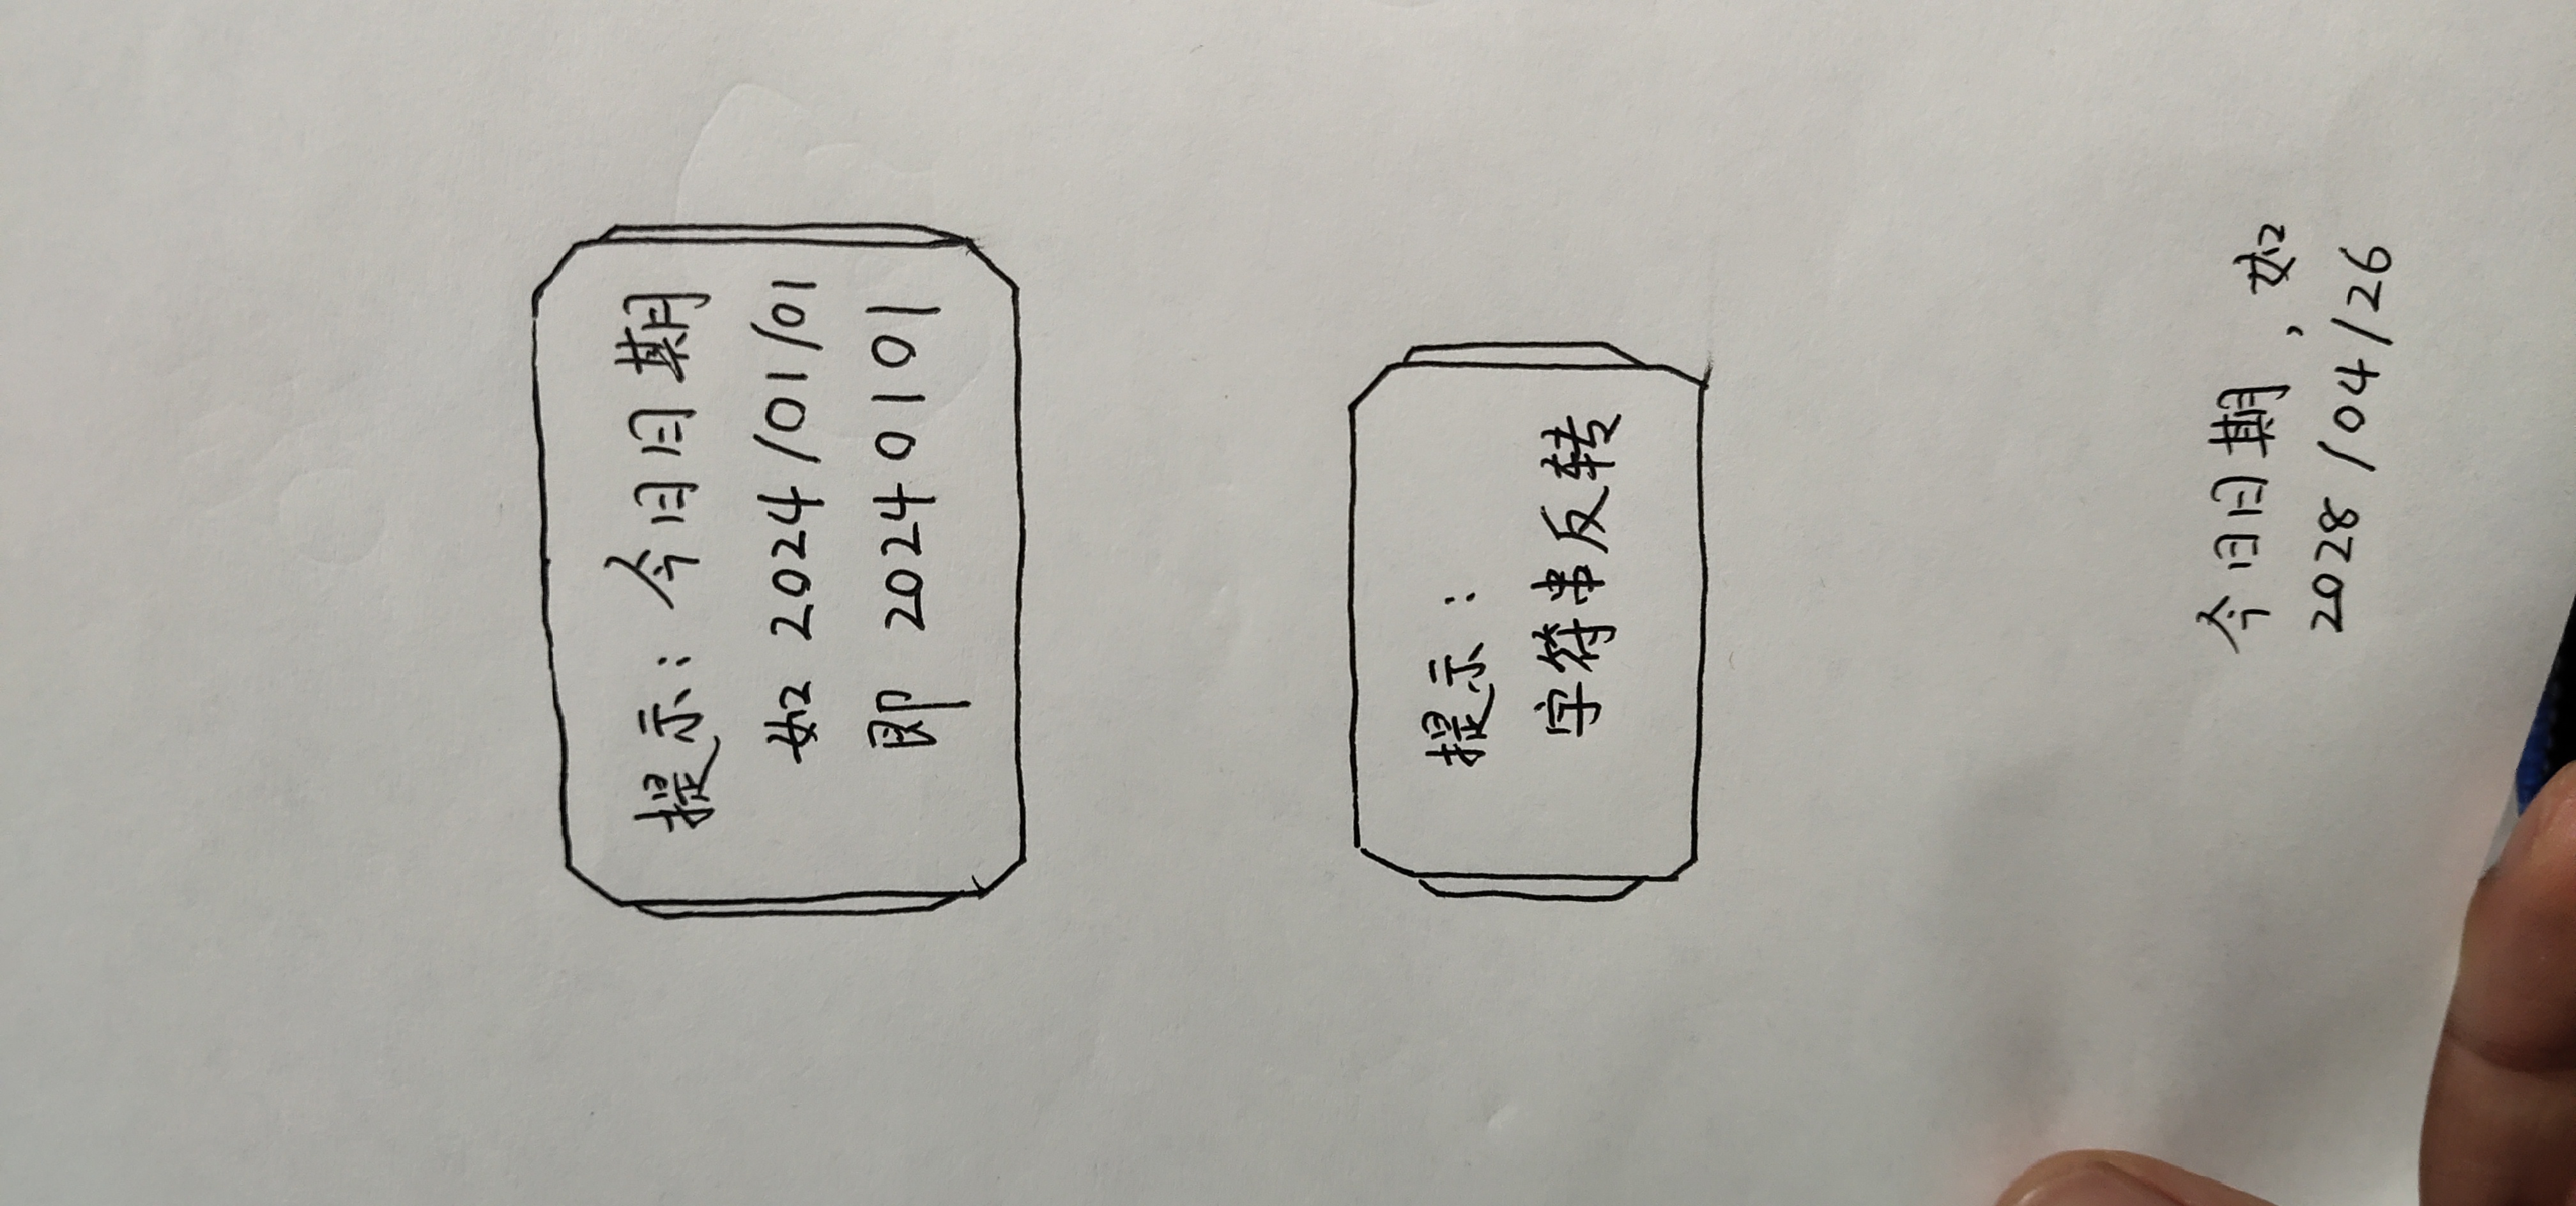 提示：今日日期
如 2024/01/01
即 20240101
提示：
字符串反转
今日日期，如
2028/04/26